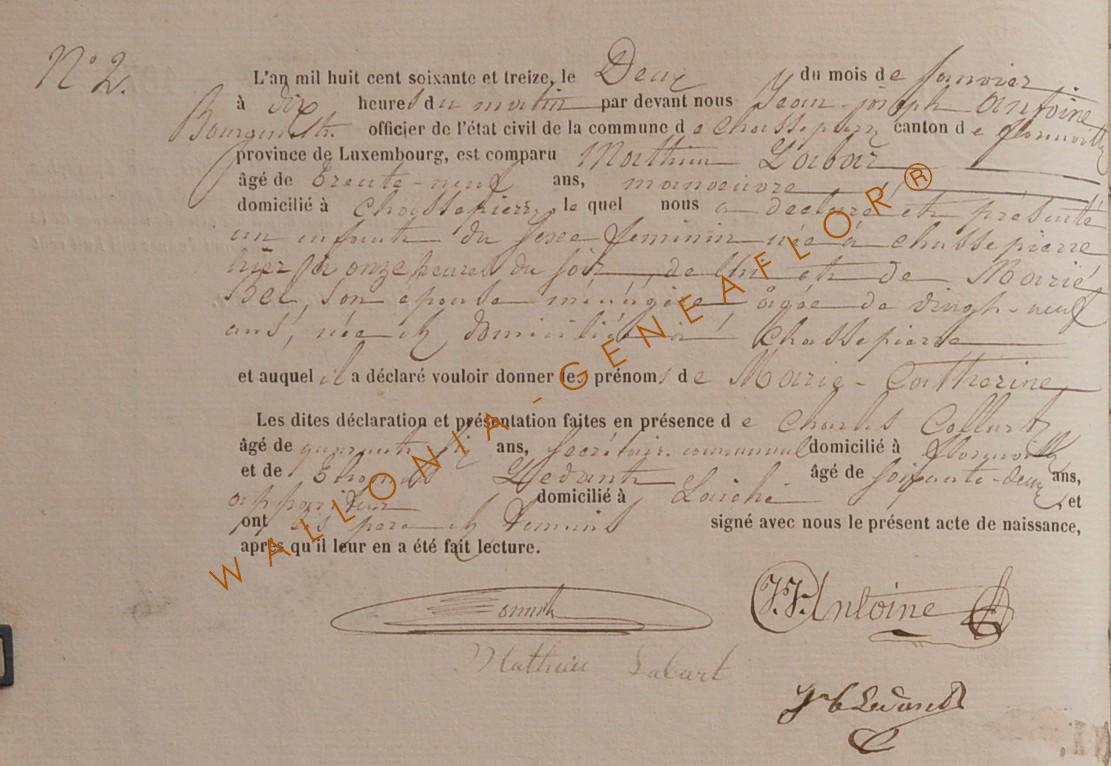 N° 2.
L'an mil huit cent soixante et treize, le Deux du mois de Janvier
à dix heures du matin par devant nous Jean-joseph Antoine
Bourgmestre officier de l'état civil de la commune de chassepierre, canton de florenville
province de Luxembourg, est comparu Mathieu Labar
âgé de trente-neuf ans, manoeuvre
domicilié à chassepierre, lequel nous a declaré et présenté
un enfant du sexe feminin née à chassepierre
hier à onze heures du soir, de lui et de Marie
son epouse ménagère âgée de vingt-neuf
ans, née et domiciliée à Chassepierre
et auquel il a déclaré vouloir donner les prénoms de Marie-Catherine
Les dites déclaration et présentation faites en présence de Charles
âgé de quarante ans, secrétaire communal domicilié à florenville
et de Ledant âgé de soixante-deux ans,
domicilié à Laiche et
ont les pere et temoins signé avec nous le présent acte de naissance,
après qu'il leur en a été fait lecture.
J.J. Antoine
Mathieu Labart
Ledant
WALLONIA-GENEAFLOR®